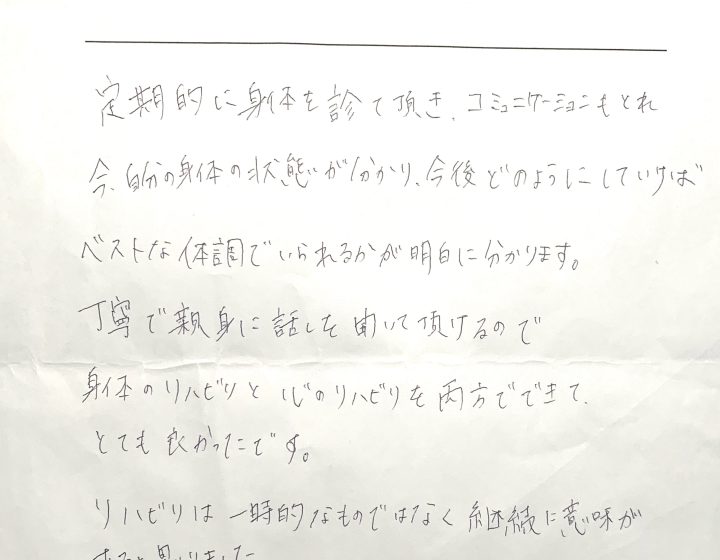 定期的に身体を診て頂き、コミュニケーションもとれ
今、自分の身体の状態が分かり、今後どのようにしていけば
ベストな体調でいられるかが明白に分かります。
丁寧で親身に話しを聞いて頂けるので
身体のリハビリと心のリハビリを両方でできて、
とても良かったです。
リハビリは一時的なものではなく継続に意味が
あると思いました